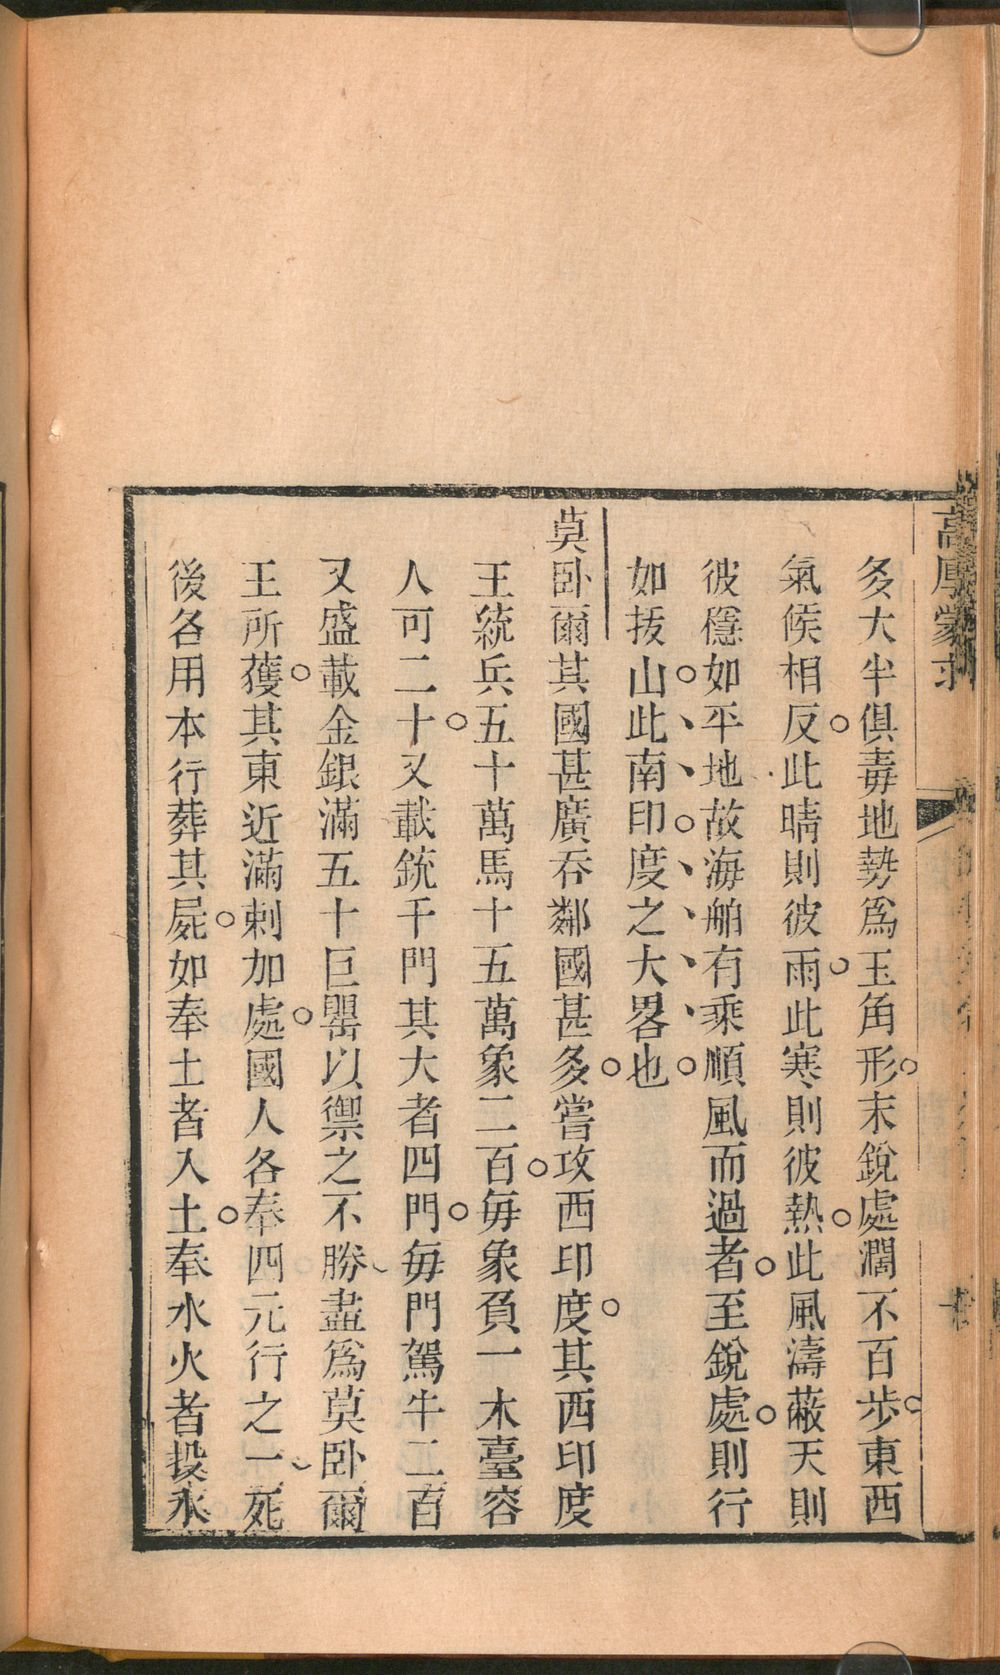 高厚蒙求
多大半俱毒地勢爲玉角形末銳處濶不百步東西
氣候相反此晴則彼雨此寒則彼熱此風濤蔽天則
彼穩如平地故海舶有乘順風而過者至銳處則行
如拔山此南印度之大畧也
莫卧爾其國甚廣吞鄰國甚多嘗攻西印度其西印度
王統兵五十萬馬十五萬象二百每象負一木臺容
人可二十又載銃千門其大者四門每門駕牛二百
又盛載金銀滿五十巨罌以禦之不勝盡爲莫卧爾
王所獲其東近滿剌加處國人各奉四元行之一死
後各用本行葬其屍如奉土者入土奉水火者投水